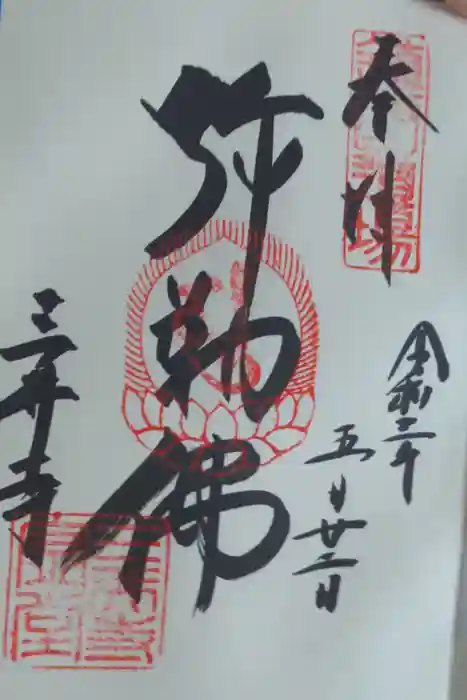 奉拝
令和二年
五月廿二日
弥勒佛
三井寺